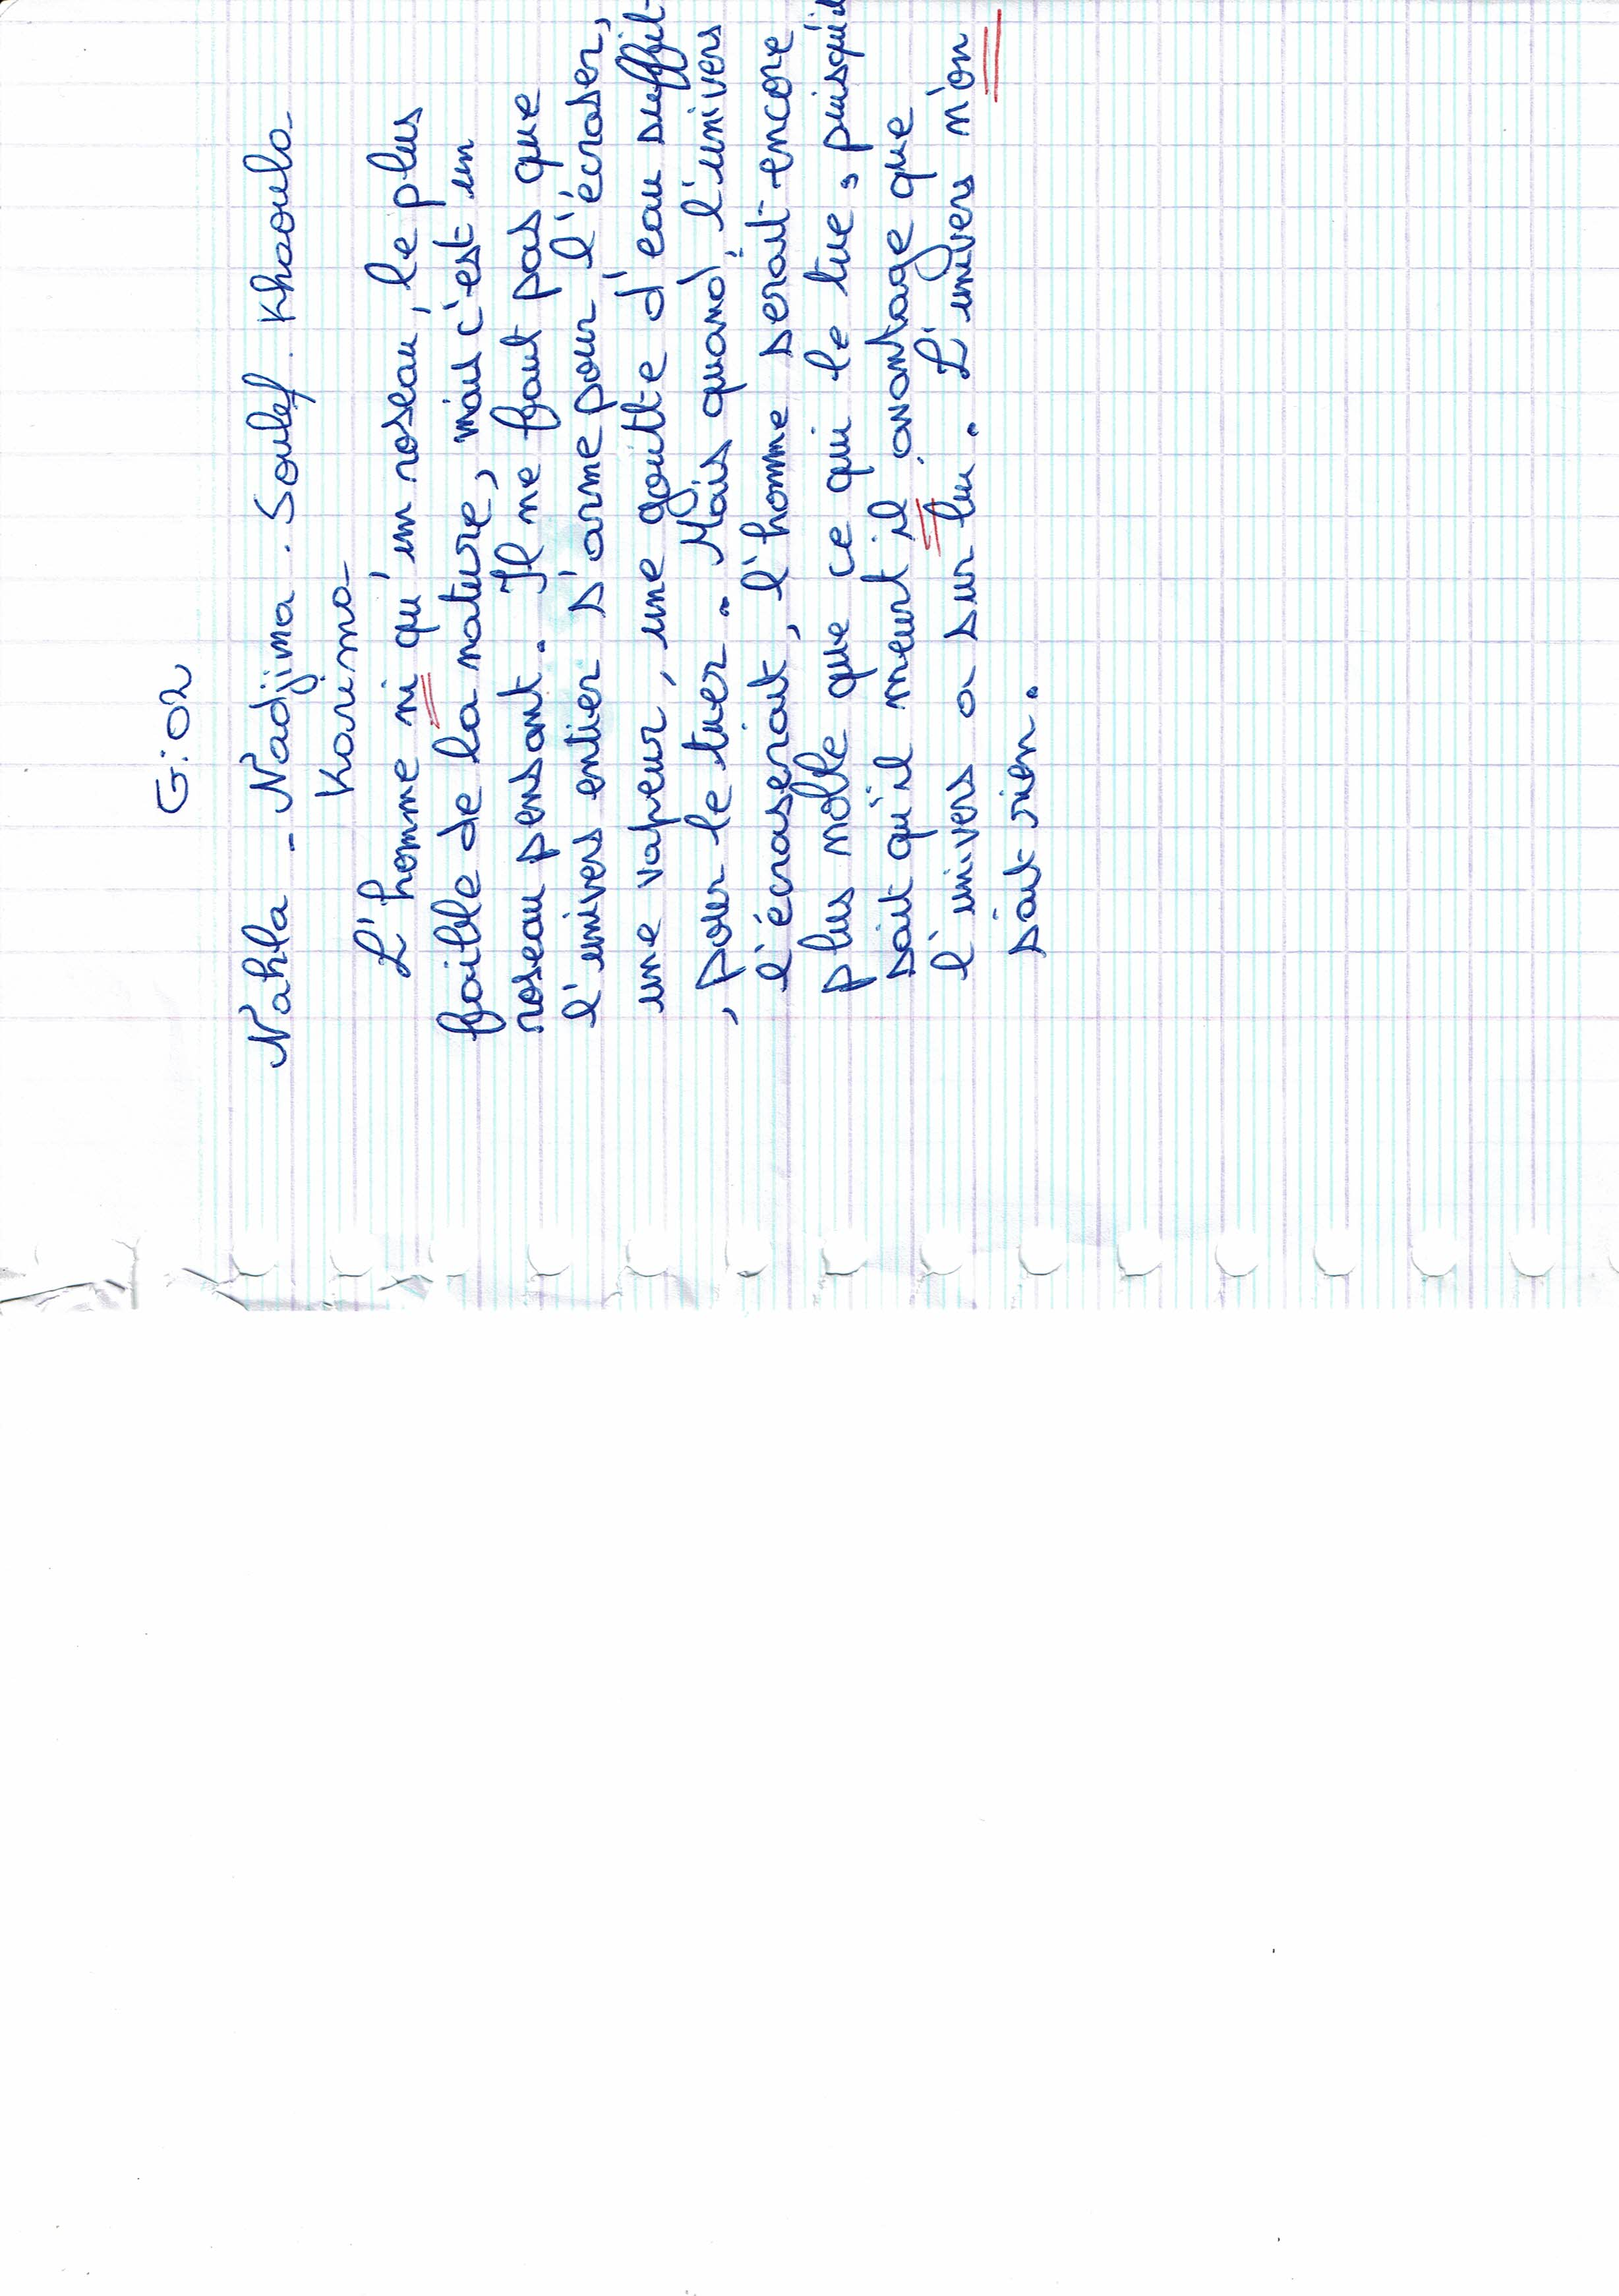 G:02
Nahla - Nadjima. Soulef. Khaoula-
Karima-
L'homme ni qu'un roseau, le plus
faible de la nature, mais c'est un
roseau pensant. Il ne faut pas que
l'univers entier s'arme pour l'écraser,
une vapeur, une goutte d'eau suffit
, pour le tuer. Mais quand, l'univers
l'écraserait, l'homme serait encore
plus noble que ce qui le tue, puisqu'il
sait qu'il meurt il avantage que
l'univers a sur lui. L'univers n'on
sait rien.